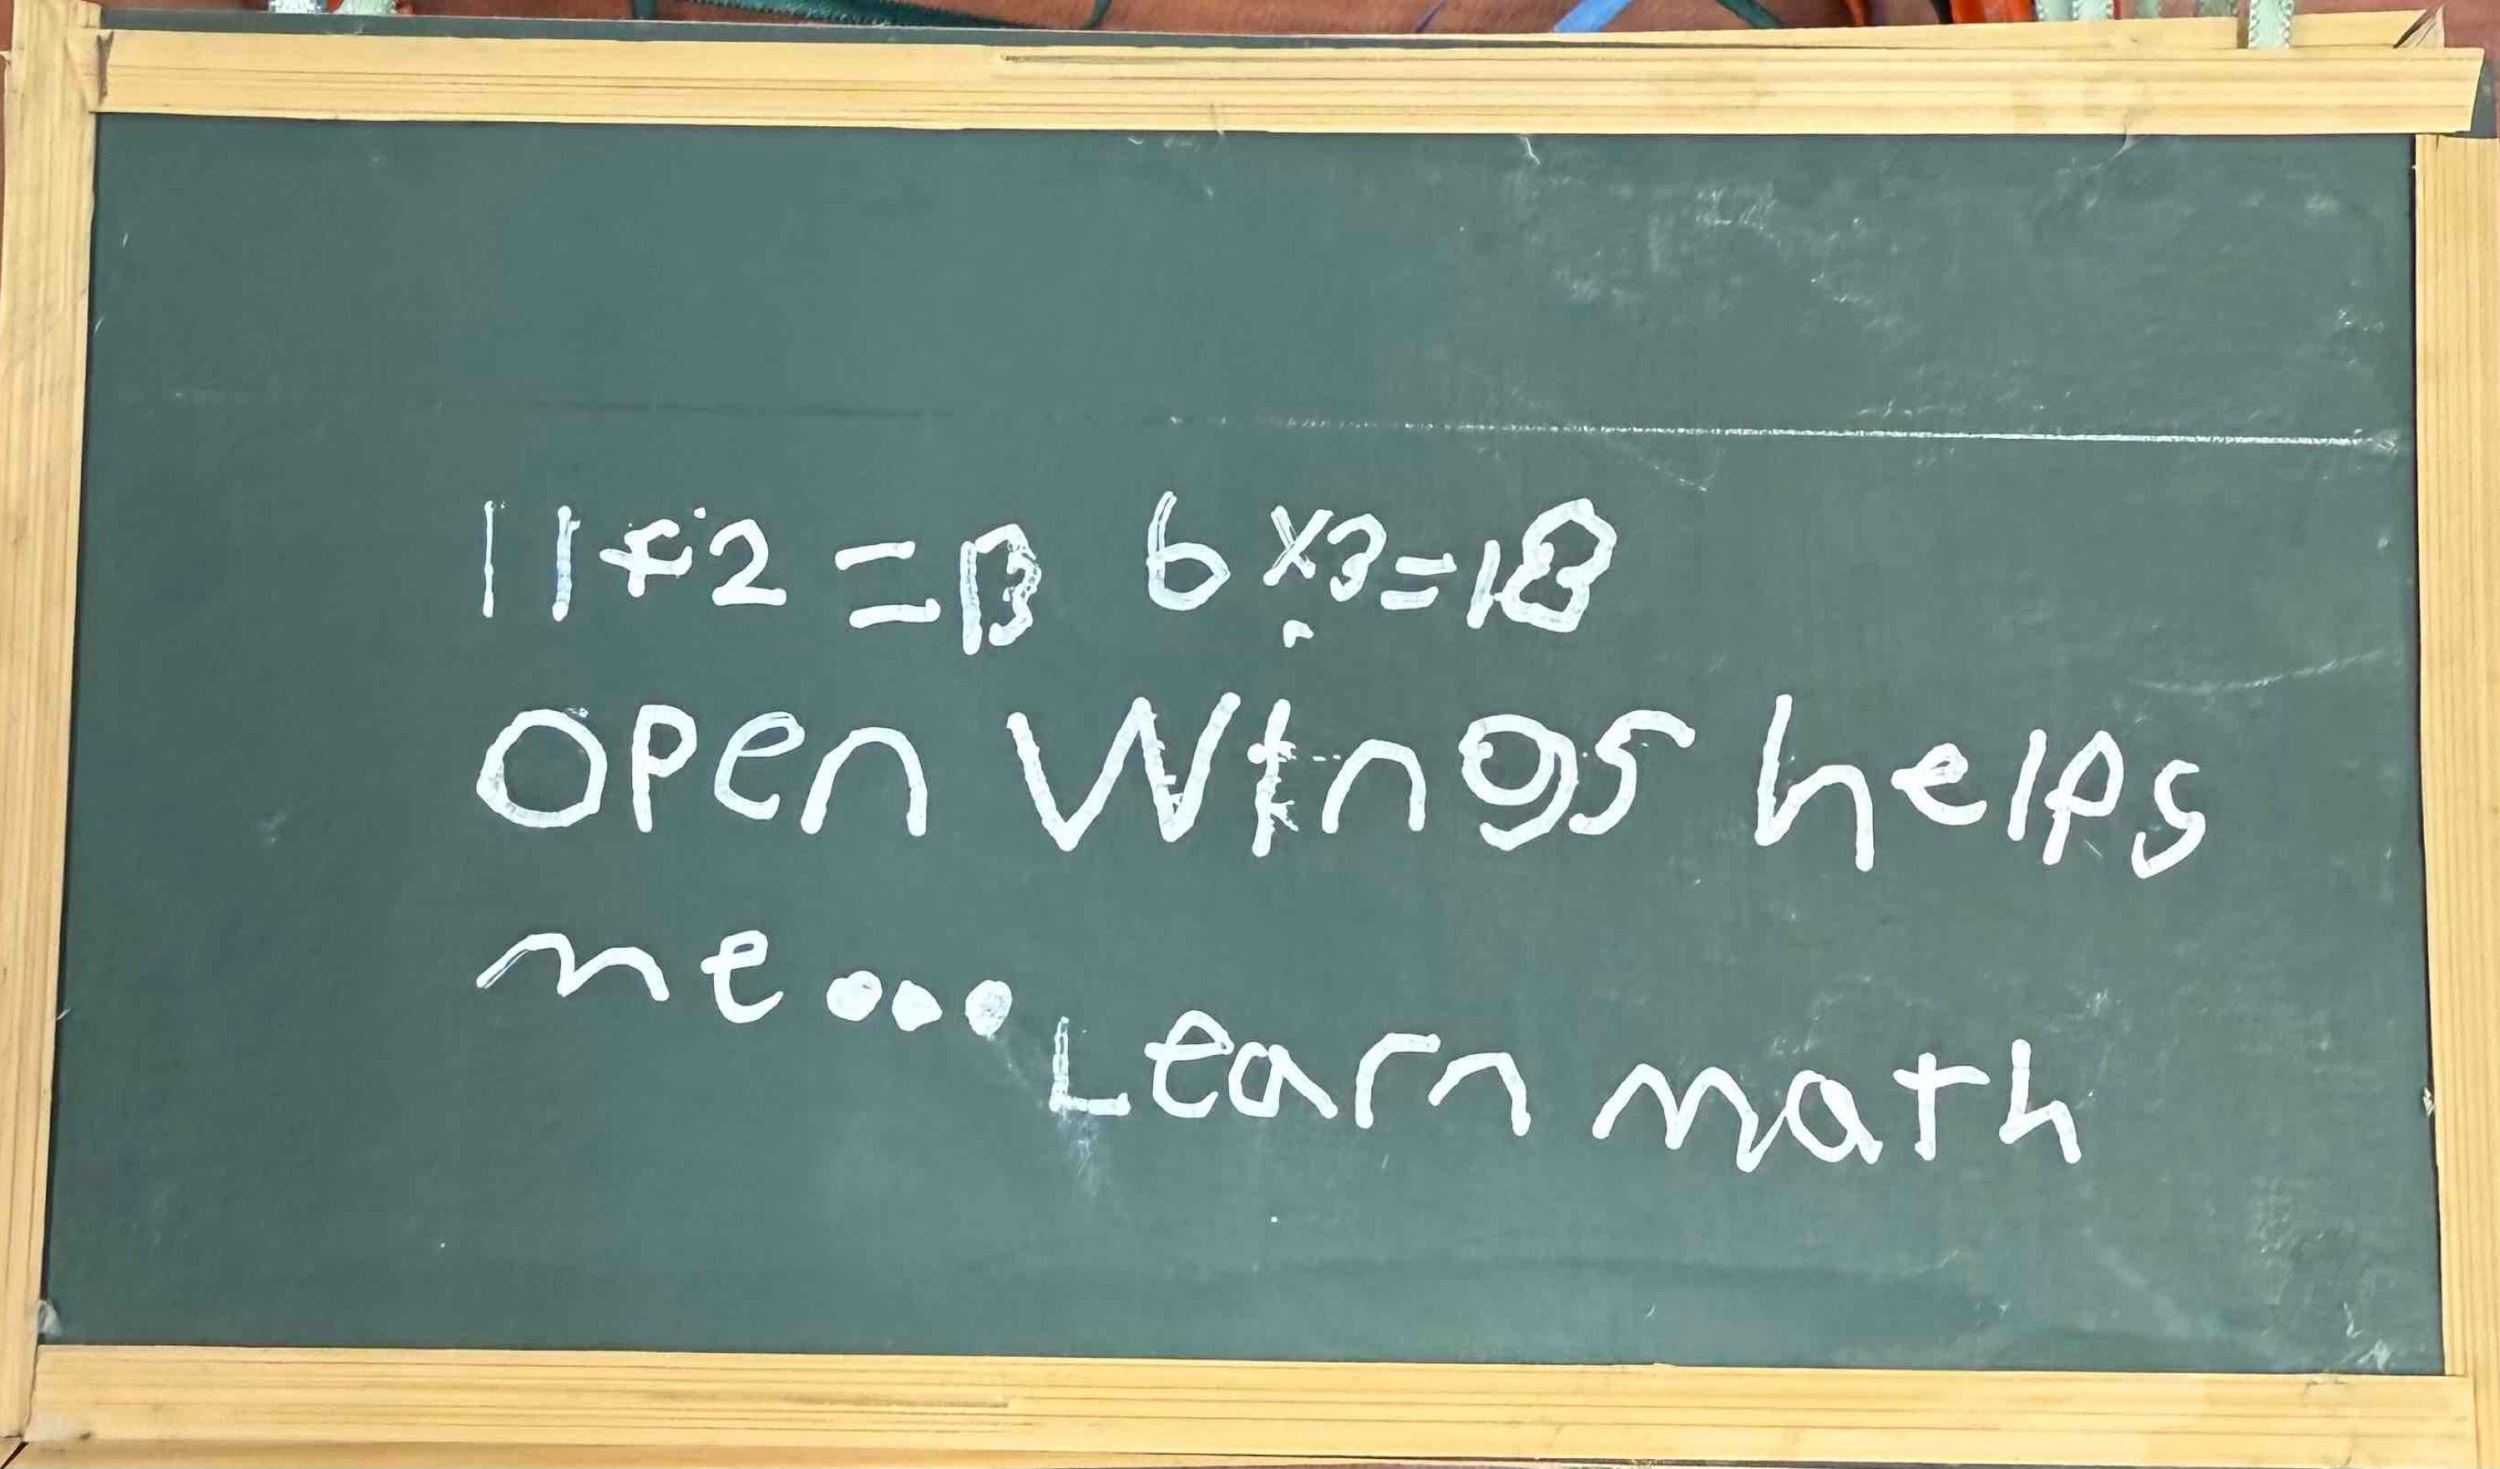 11+2=13 6x3=18
open Wings helps
me...
Learn math